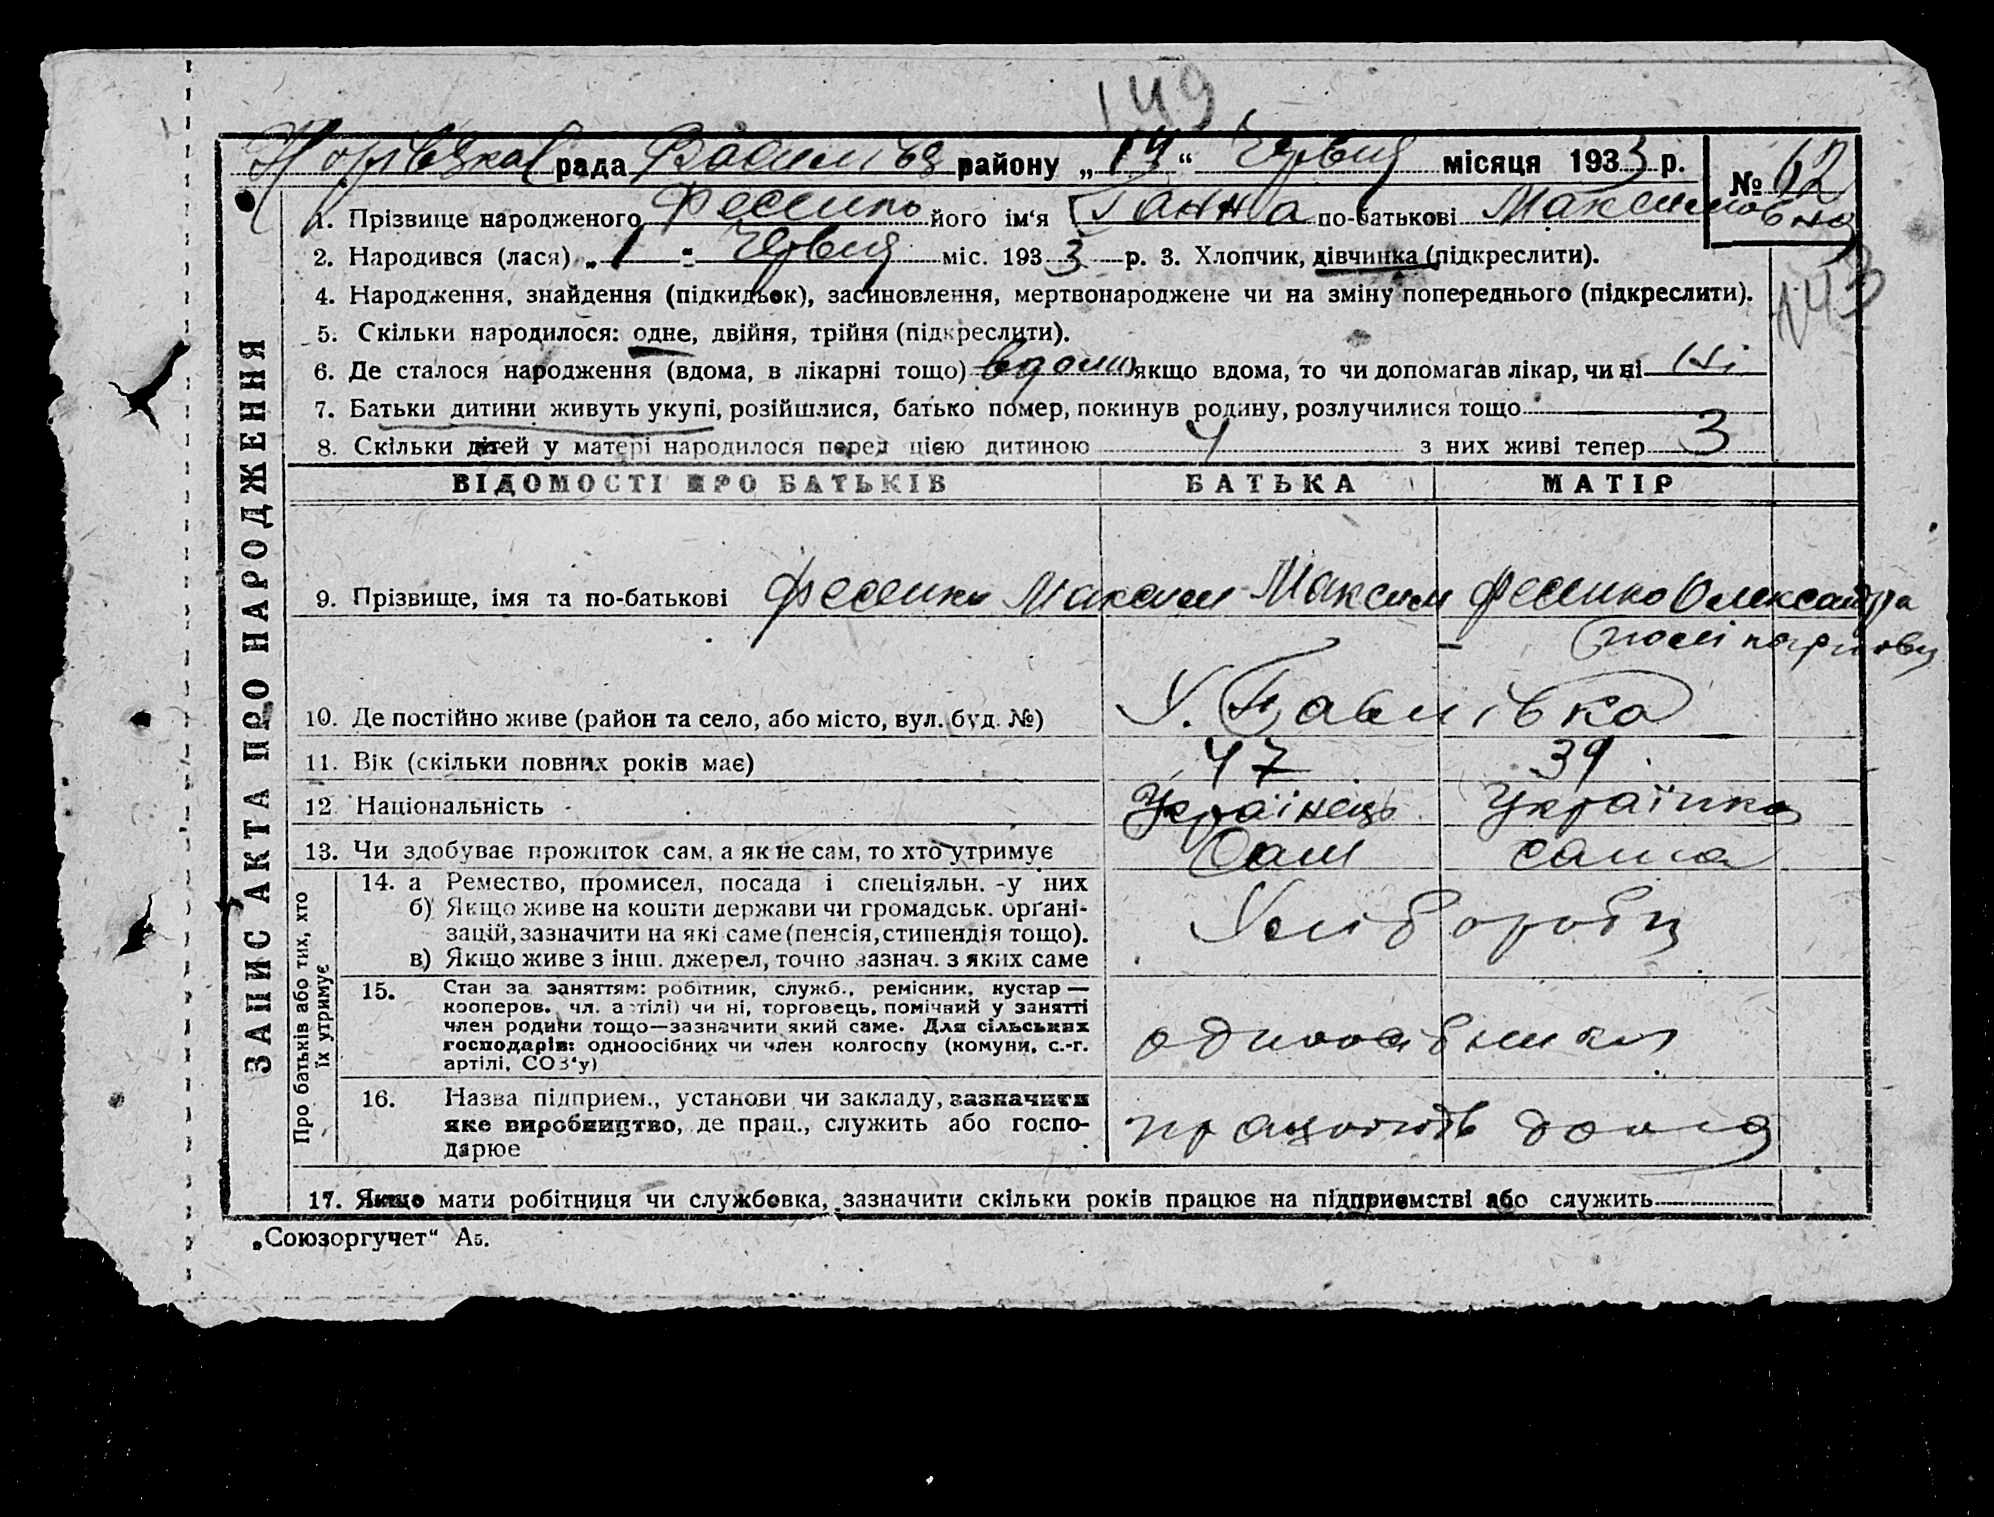 149
рада района „14“ Червня місяця 1933 р. № 62
1. Прізвище народженого Фесенко його ім‘я Ганна по-батькові Максимовна
2. Народився (лася) „ 1 - Червня міс. 1933 р. 3. Хлопчик, дівчинка (підкреслити).
143
4. Народження, знайдення (підкидьок), засиновлення, мертвонароджене чи на зміну попереднього (підкреслити).
5. Скільки народилося: одне, двійня, трійня (підкреслити).
6. Де сталося народження (вдома, в лікарні тощо) вдома якщо вдома, то чи допомагав лікар, чи ні Ні
7. Батьки дитини живуть укупі, розійшлися, батько помер, покинув родину, розлучилися тощо
8. Скільки дітей у матері народилося перед цією дитиною 4 з них живі тепер 3
ВІДОМОСТІ ПРО БАТЬКІВ БАТЬКА МАТІР
9. Прізвище, імя та по-батькові Фесенко Максим Максим Фесенко Олександра
10. Де постійно живе (район та село, або місто, вул. буд. №) У. Павлівка
11. Вік (скільки повних років має) 47 39
12 Національність Українець Українка
13. Чи здобуває прожиток сам, а як не сам, то хто утримує Сам сама
14. а Ремество, промисел, посада і спеціяльн. -у них
б) Якщо живе на кошти держави чи громадськ. органі-
зацій, зазначити на які саме (пенсія, стипендія тощо).
в) Якщо живе з інш. джерел, точно зазнач. з яких саме
Хлібороби
15. Стан за заняттям: робітник, служб., ремісник, кустар —
кооперов. чл. артілі) чи ні, торговець, помічний у занятті
член родини тощо—зазначити який саме. Для сільських
господарів: одноосібних чи член колгоспу (комуни, с.-г.
артілі, СОЗ‘у)
одноосібники
16. Назва підприєм., установи чи закладу, зазначити
яке виробництво, де прац., служить або госпо-
дарює
працюють дома
17. Якщо мати робітниця чи службовка, зазначити скільки років працює на підприємстві або служить
„Союзоргучет“ А5.
ЗАПИС АКТА ПРО НАРОДЖЕННЯ
Про батьків або тих, хто
їх утримує